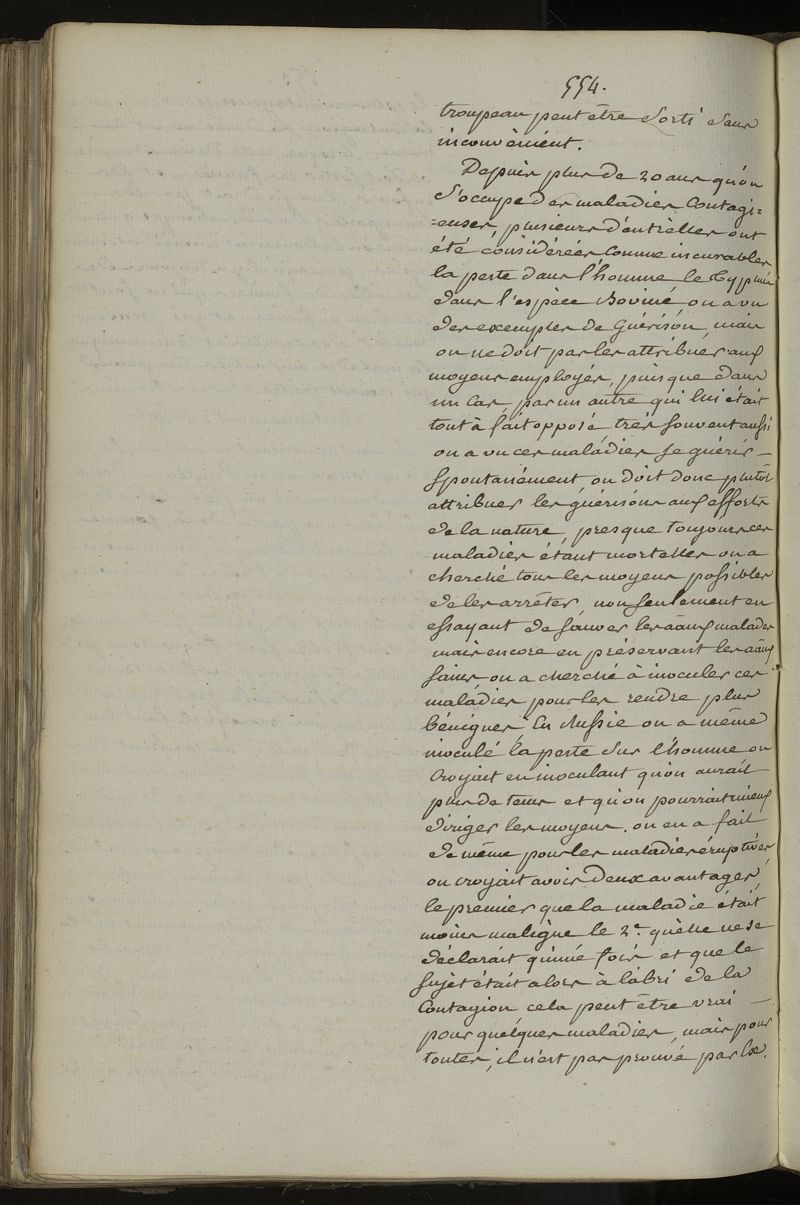 554.
troupeau peut être sorti sans
inconvénient.
Depuis plus de 20 ans qu'on
s'occupe des maladies Contagi=
=euses, plusieurs d'entrèlles ont
été considérées comme incurables
la peste dans l'homme le typhus
dans l'espèce Bovine on a vu
des exemples de Guérison, mais
on ne doit pas les attribuer aux
moyens employés, puisque dans
un Cas, par un autre qui lui était
tout à fait opposé très souvent aussi
on a vu ces maladies se guérir –
spontanément, on doit donc plutôt
attribuer les guérisons aux efforts
de la nature, presque toujours ces
maladies étant mortelles on a
cherché tous les moyens possibles
de les arrêter, non seulement en
essayant de sauver les aaux malades
mais encore en préservant les aaux
sains on a cherché à inoculer ces
maladies pour les rendre plus
bénignes, En Russie on a même
inoculé la peste sur l'homme on
croyait en inoculant qu'on aurait
plus de tems et qu'on pourrait mieux
diriger les moyens. on en a fait
de même pour les maladies éruptives
on croyait avoir deux avantages,
le premier que la maladie était
moins maligne le 2.e qu'elle ne se
déclarait qu'une fois et que le
sujet était alors à l'abri de la
Contagion cela peut être vrai –
pour quelques maladies, mais pour
toutes, il n'est pas prouvé par l'ex.